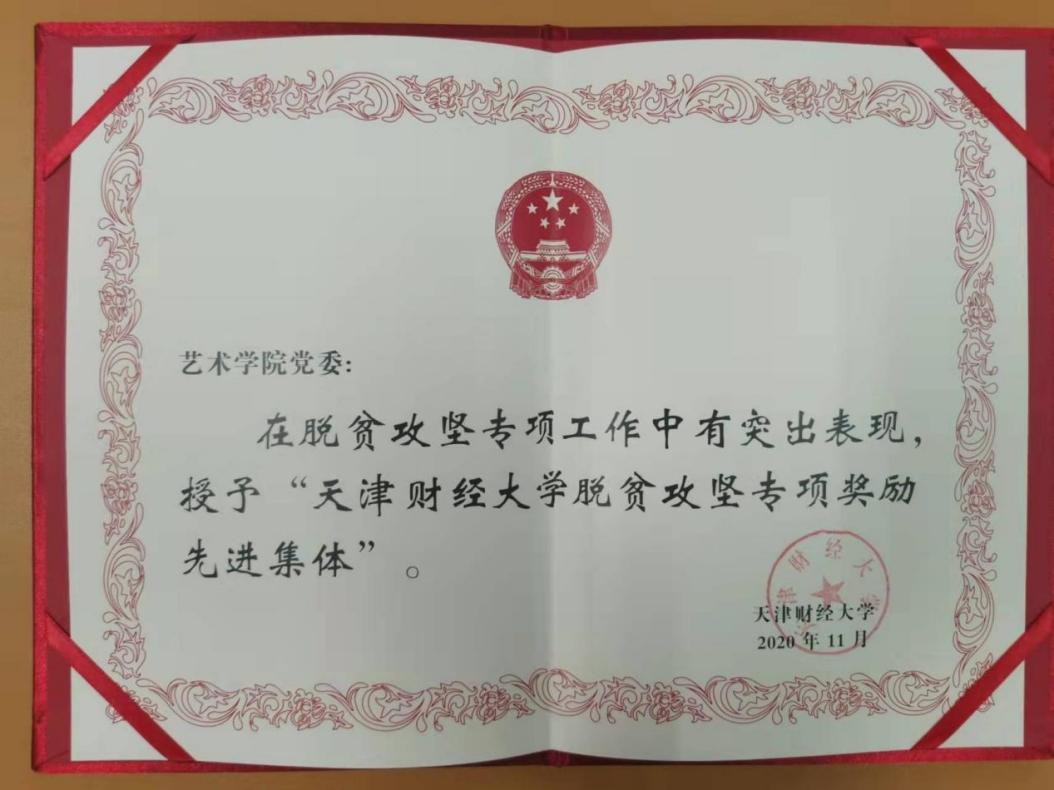 艺术学院党委:
在脱贫攻坚专项工作中有突出表现,
授予“天津财经大学脱贫攻坚专项奖励
先进集体”。
天津财经大学
天津财经大学
2020 年 11 月